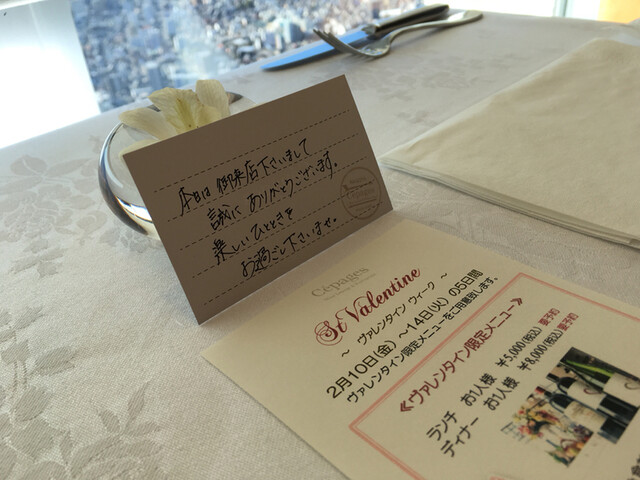 本日は御来店下さいまして
誠にありがとうございます。
楽しいひとときを
お過ごし下さいませ。
Cépages
St Valentine
～ ヴァレンタイン ウィーク ～
2月10日(金)～14日(火) の5日間
ヴァレンタイン限定メニューをご用意致します。
≪ヴァレンタイン限定メニュー≫
ランチ お1人様 ¥5,000(税込) 要予約
ディナー お1人様 ¥8,000(税込) 要予約